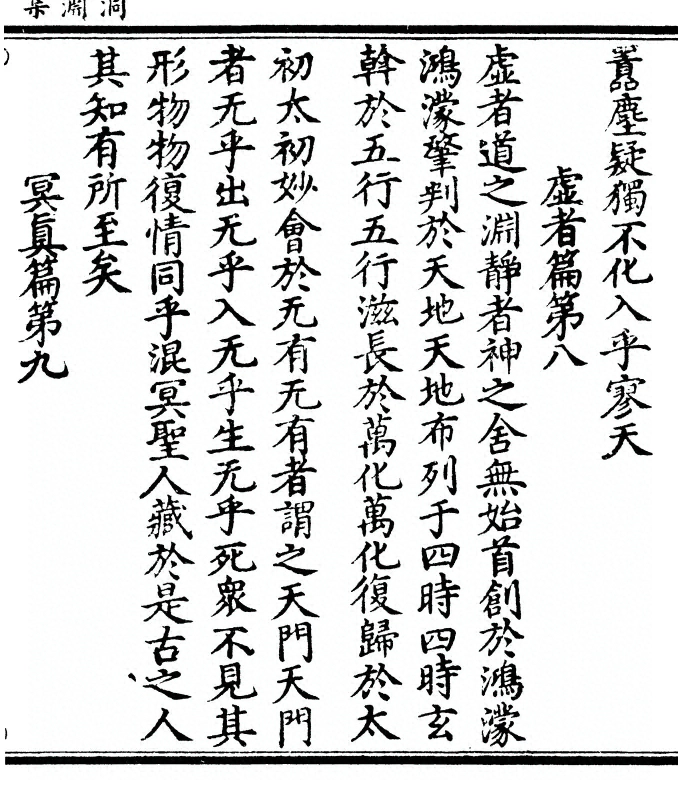 洞淵集
囂塵疑獨不化入乎寥天
虛者篇第八
虛者道之淵靜者神之舍無始首創於鴻濛
鴻濛肇判於天地天地布列于四時四時玄
斡於五行五行滋長於萬化萬化復歸於太
初太初妙會於无有无有者謂之天門天門
者无乎出无乎入无乎生无乎死眾不見其
形物物復情同乎混冥聖人藏於是古之人
其知有所至矣
冥真篇第九